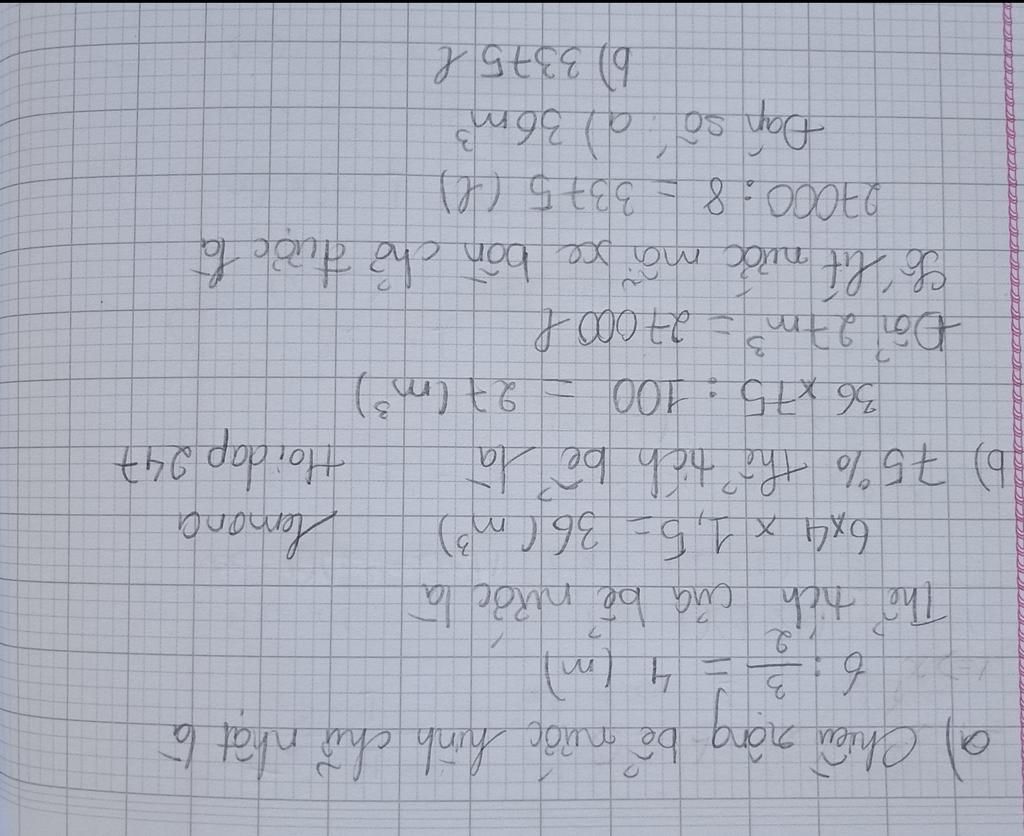 a) Chiều rộng bể nước hình chữ nhật là
6 : 3/2 = 4 (m)
Thể tích của bể nước là
6x4 x 1,5 = 36 (m³) lemona
b) 75% thể tích bể là Hoidap247
36 x 75 : 100 = 27 (m³)
Đổi 27m³ = 27000 l
Số lít nước mỗi xe bồn chở được là
27000 : 8 = 3375 (l)
Đáp số : a) 36m³
b) 3375 l